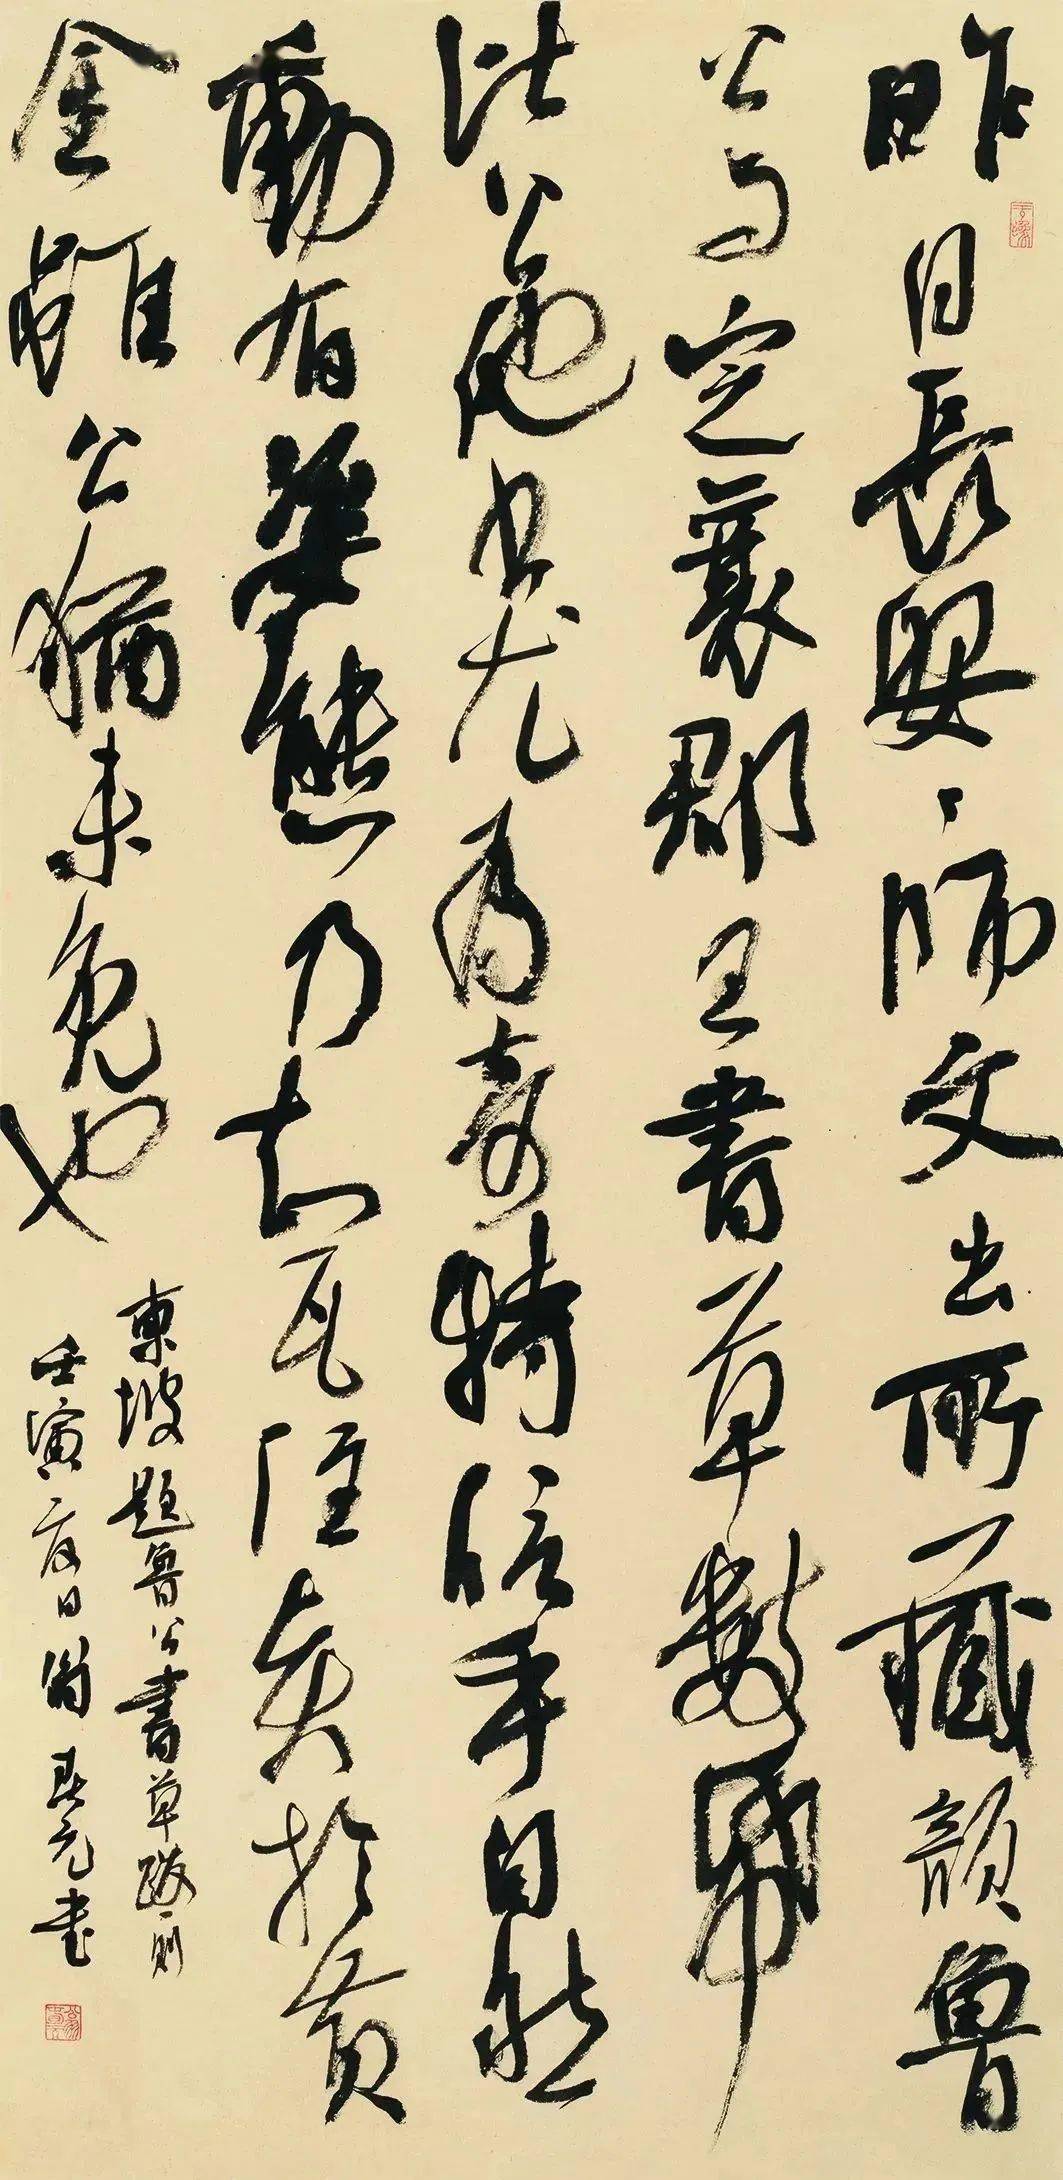 昨日長安安師文出所藏顏魯
公與定襄郡王書草數紙
比公他書尤為奇特信手自然
動有姿態乃知瓦注賢於黃
金雖公猶未免也
東坡題魯公書草跋一則
壬寅夏日劉春元書